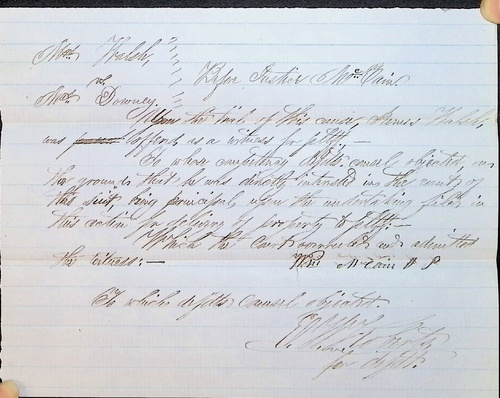 Mrs Walsh,
vs. Before Justice McCain.
Mrs Downey.
Upon the trial of this cause, James Walsh,
was offered as a witness for pltff.—
To whose competency defts counsel objected, on
the grounds that he was directly interested in the costs of
this suit, being principal upon the undertaking filed in
this action for delivery of property to pltff.—
Which the Court overruled and admitted
the witness:— Wm McCain J P
To which defts counsel objected.
for defts.